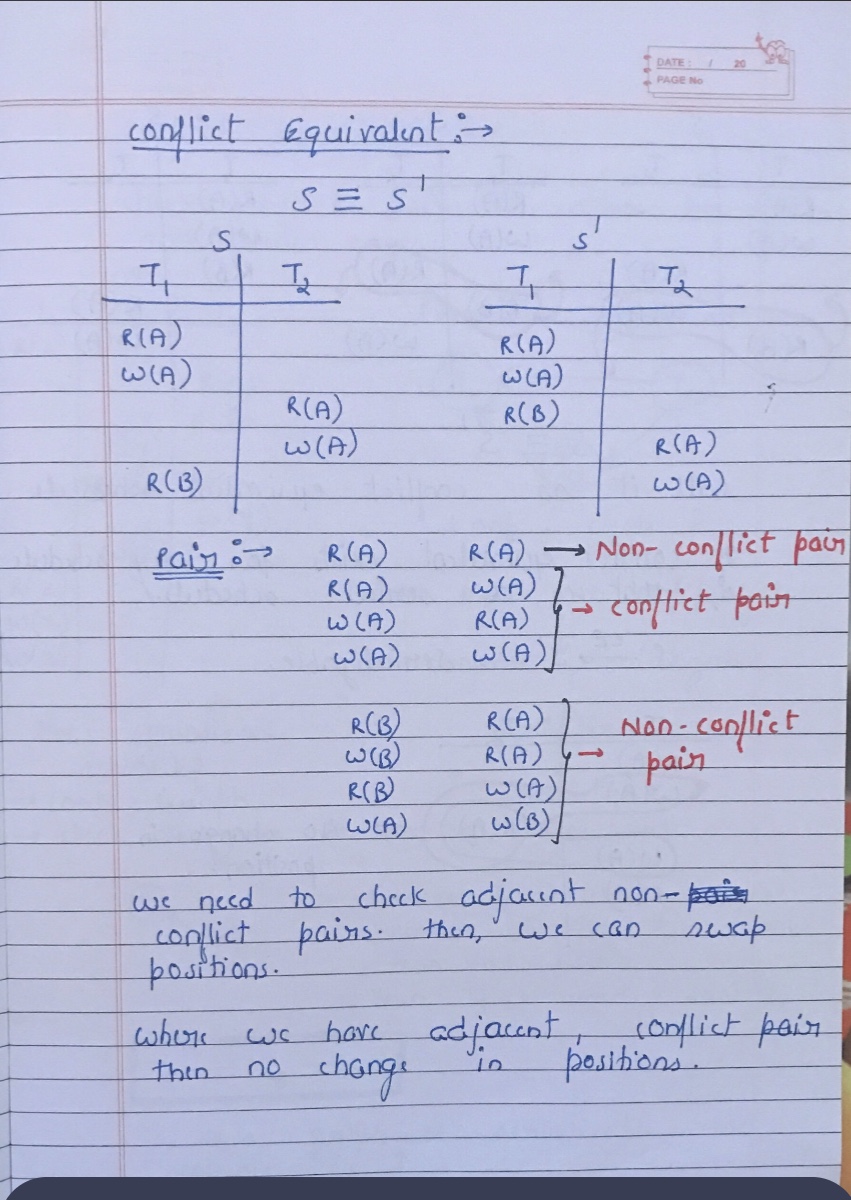 DATE: / 20
PAGE No
Conflict Equivalent :→
S ≡ S'
S S'
T1 T2 T1 T2
R(A) R(A)
W(A) W(A)
R(A) R(B)
W(A) R(A)
R(B) W(A)
Pair :→ R(A) R(A) → Non-conflict pair
R(A) W(A)
W(A) R(A) → conflict pair
W(A) W(A)
R(B) R(A) Non-conflict
W(B) R(A) → pair
R(B) W(A)
W(A) W(B)
we need to check adjacent non-
conflict pairs. then, we can swap
positions.
where we have adjacent, conflict pair
then no change in positions.